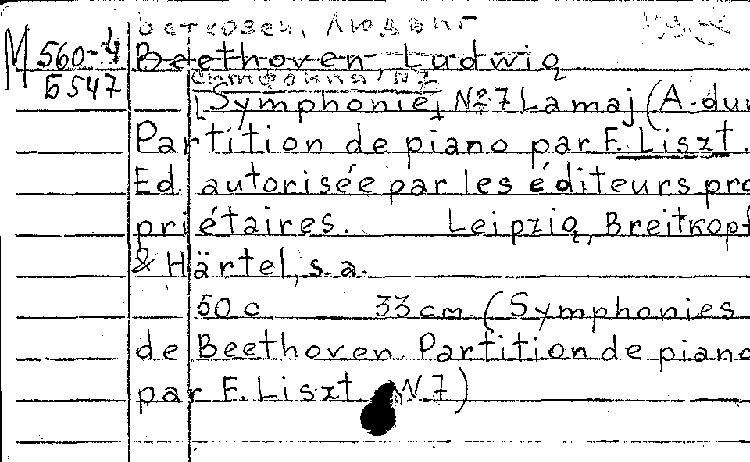 Бетховен, Людвиг
М 560-4
Б547
Beethoven Ludwig
Симфония, №7
[Symphonie], №7 La maj (A-dur
Partition de piano par F. Liszt.
Ed. autorisée par les éditeurs pro
priétaires. Leipzig, Breitkopf
& Härtel, s.a.
50 c 33 cm (Symphonies
de Beethoven. Partition de piano
par F. Liszt N.7)